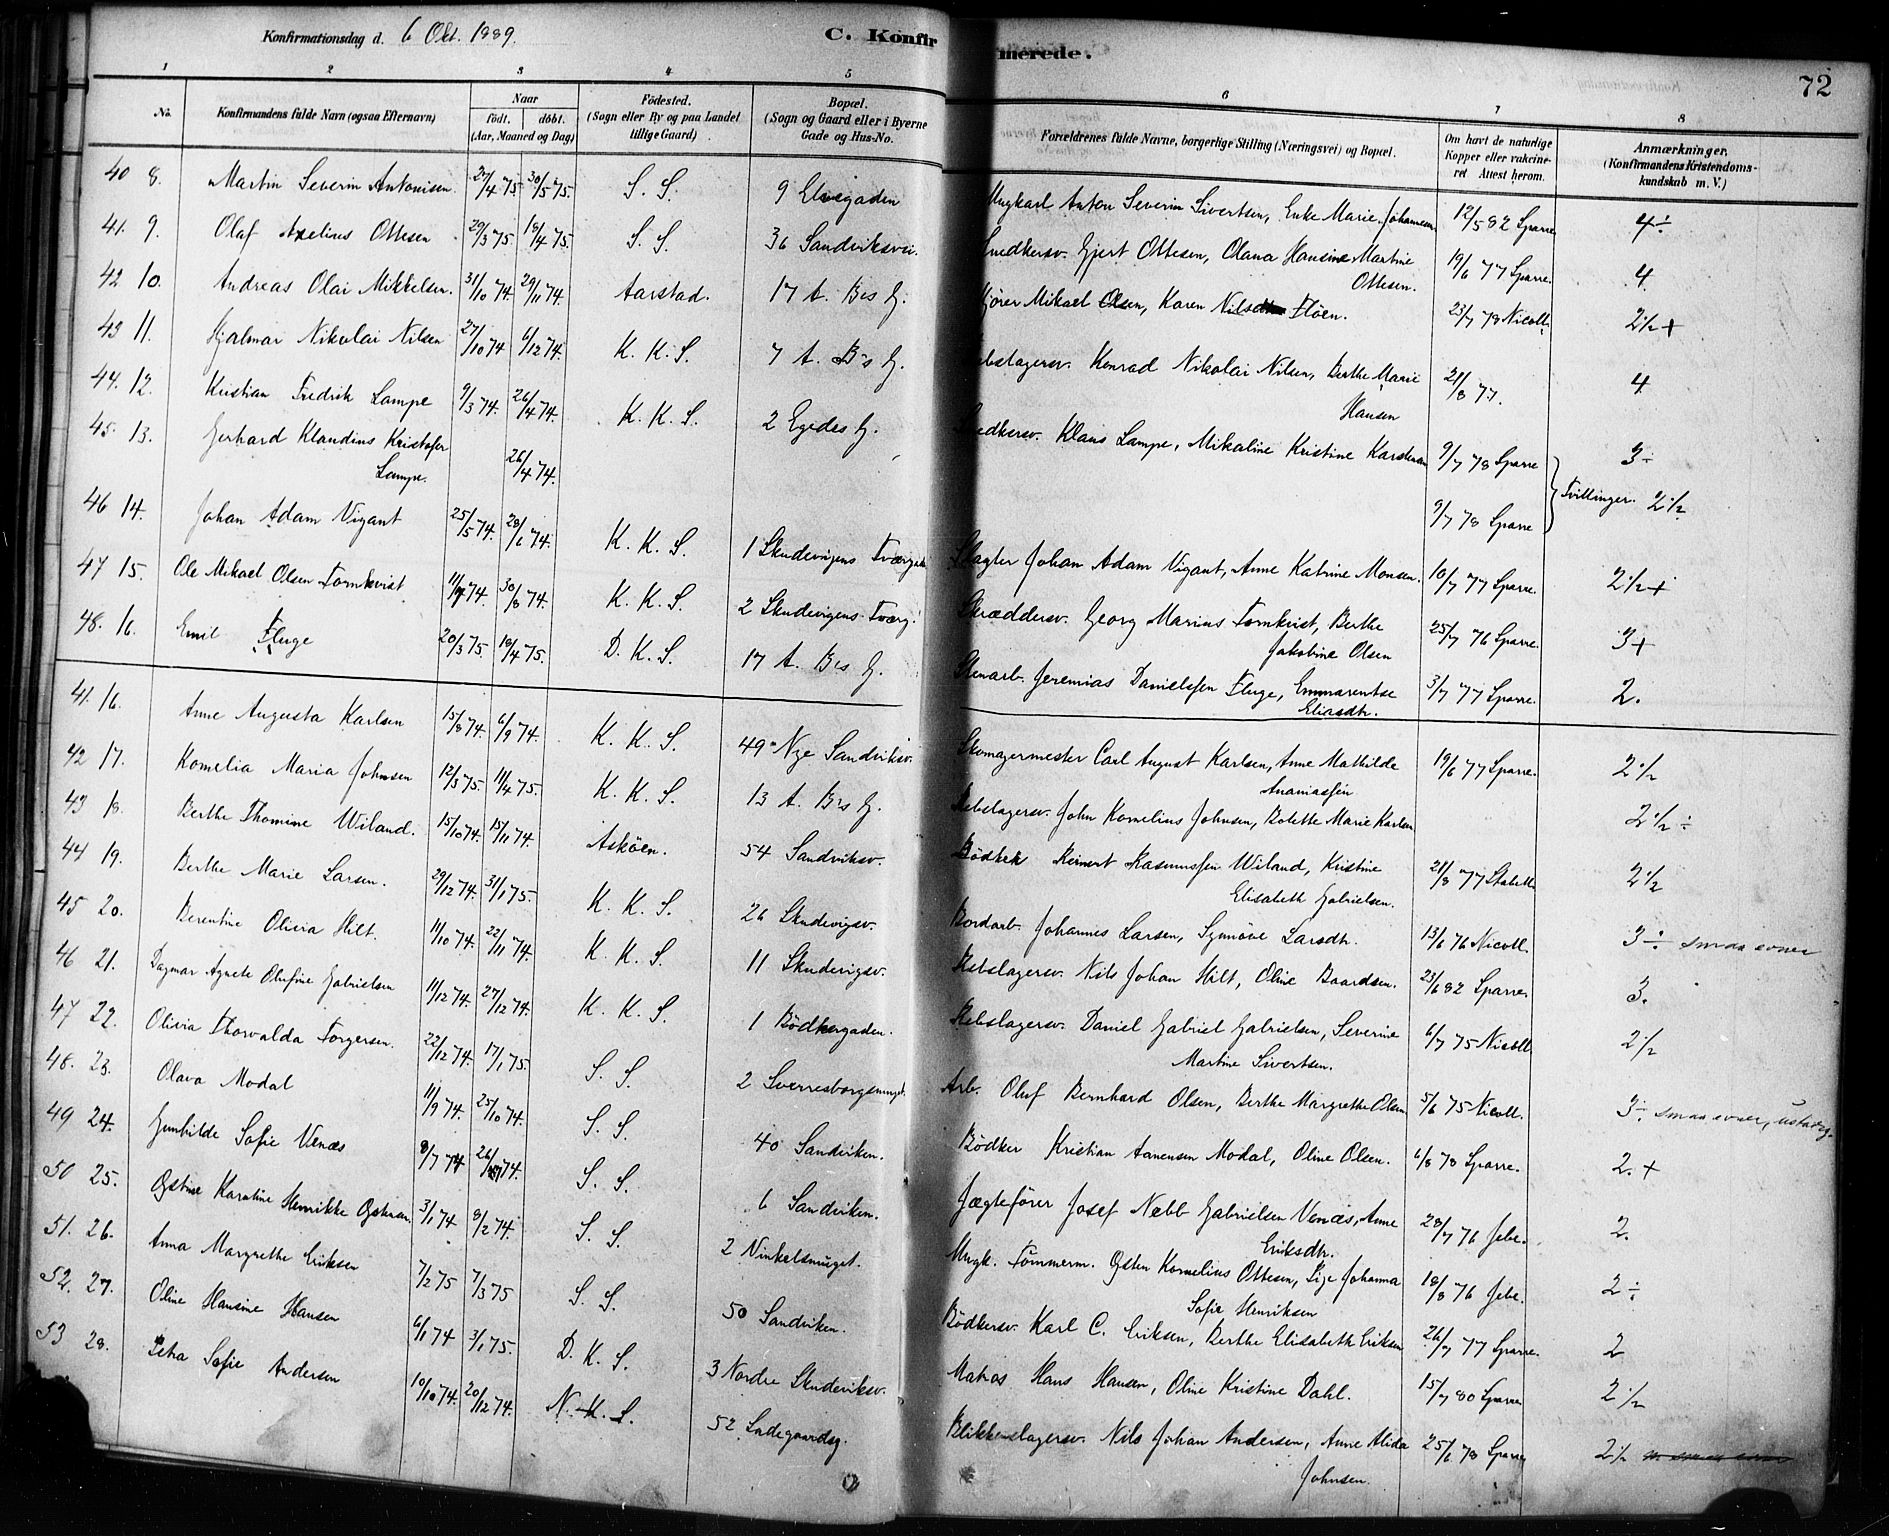 Konfirmationsdag d. 6 Okt. 1889.
C. Konfirmerede.
72
1 2 3 4 5 6 7 8
No.
Konfirmandens fulde Navn (ogsaa Efternavn)
Naar
födt. döbt.
(Aar, Maaned og Dag)
Födested.
(Sogn eller By og paa Landet
tillige Gaard)
Bopæl.
(Sogn og Gaard eller i Byerne
Gade og Hus-No.
Forældrenes fulde Navne, borgerlige Stilling (Næringsvei) og Bopæl.
Om havt de naturlige
Kopper eller vakcine-
ret Attest herom.
Anmærkninger.
(Konfirmandens Kristendoms-
kundskab m. V.)
40 8. Martin Severin Antonisen 27/4 75. 30/5 75. S. S. 9 Elvegaden Ungkarl Anton Severin Sivertsen, Enke Marie Johannesen 12/5 82 Sparre 4÷
41. 9. Olaf Axelius Ottesen 29/3 75. 18/4 75. S. S. 36 Sandviksvei. Snedkersv. Gjert Ottesen, Olana Hansine Martine
Ottesen. 19/6 77 Sparre. 4
42 10. Andreas Olai Mikkelsen. 31/10 74. 29/11 74. Aarstad. 17 A. B's G. Kjører Mikael Olsen, Karen Nilsdtr Fløen. 23/7 78 Nicoll. 2 1/2 +
43 11. Hjalmar Nikolai Nilsen 27/10 74 6/12 74. K. K. S. 7 A. B's G. Rebslagersv. Konrad Nikolai Nilsen, Berthe Marie
Hansen 21/8 77. 4
44. 12. Kristian Fredrik Lampe 9/3 74. 26/4 74. K. K. S. 2 Egedes G. Snedkersv. Klaus Lampe, Mikaline Kristine Karstensen 9/7 78 Sparre 3÷
45. 13. Gerhard Klaudius Kristofer
Lampe. 26/4 74. 9/7 78 Sparre Tvillinger. 2 1/2
46 14. Johan Adam Vigant 25/5 74. 28/6 74. K. K. S. 1 Skudevigens Tværgade Slagter Johan Adam Vigant, Anne Katrine Monsen. 10/7 77 Sparre. 2 1/2 +
47 15. Ole Mikael Olsen Tornkvist 11/7 74. 30/8 74. K. K. S. 2 Skudevigens Tværg. Skræddersv. Georg Marius Tornkvist, Berthe
Jakobine Olsen 25/7 76 Sparre. 3+
48. 16. Emil Fluge 20/3 75. 18/4 75. D. K. S. 17 A. B's G. Stenarb. Jeremias Danielssen Fluge, Emmarentse
Eliasdtr. 3/7 77 Sparre. 2.
41. 16. Anne Augusta Karlsen 15/8 74. 6/9 74. K. K. S. 49 Nye Sandviksv. Skomagermester Carl August Karlsen, Anne Mathilde
Ananiassen 19/6 77 Sparre. 2 1/2
42 17. Kornelia Maria Johnsen 12/3 75. 11/4 75. K. K. S. 13 A. B's G. Rebslagersv. John Kornelius Johnsen, Bolette Marie Karlsen 2 1/2 ÷
43 18. Berthe Thomine Wiland. 15/10 74. 15/11 74. Askøen. 54 Sandviksv. Bødker Reinert Rasmussen Wiland, Kristine
Elisabeth Gabrielsen. 21/8 77 Stabell 2 1/2
44 19. Berthe Marie Larsen. 29/12 74. 31/1 75. K. K. S. 26 Skudevigsv. Bordarb. Johannes Larsen, Synnøve Larsdtr. 13/6 76 Nicoll. 3÷ smaa evner
45 20. Berentine Olivia Hilt. 11/10 74. 22/11 74. K. K. S. 11 Skudevigsv. Rebslagersv. Nils Johan Hilt, Oline Baardsen. 23/6 82 Sparre 3.
46 21. Dagmar Agnete Olufine Gabrielsen 11/12 74. 27/12 74. K. K. S. 1 Bødkergaden. Rebslagersv. Daniel Gabriel Gabrielsen, Severine
Martine Sivertsen. 6/7 75 Nicoll. 2 1/2
47 22. Olivia Thorvalda Torgersen. 22/12 74. 17/1 75. S. S. 2 Sverresborgsmuget. Arb. Oluf Bernhard Olsen, Berthe Margrethe Olsen 5/6 75 Nicoll. 3÷ smaa evner,
48. 23. Olava Modal 11/9 74. 25/10 74. S. S. 40 Sandviken. Bødker Kristian Aanensen Modal, Oline Olsen. 6/8 78 Sparre. 2.+
49 24. Gunhilde Sofie Venæs 8/7 74 26/7 74. S. S. 6 Sandviken. Jægtefører Josef Nebb Gabrielsen Venæs, Anne
Eriksdtr. 28/7 76 Jebe. 2.
50 25. Ostine Karoline Henrikke Ostensen 3/1 74. 8/2 74. S. S. 2 Vinkelsmuget. Ungk. Tømmerm. Osten Kornelius Ottesen, Pige Johanna
Sofie Henriksen 18/8 76 Jebe. 2÷
51. 26. Anna Margrethe Eriksen 7/2 75 7/3 75 S. S. 50 Sandviken. Bødkersv. Karl C. Eriksen, Berthe Elisabeth Eriksen 26/7 77 Sparre. 2
52. 27. Oline Hansine Hansen 6/1 74 3/1 75. D. K. S. 3 Nordre Skudeviksv. Matros Hans Hansen, Oline Kristine Dahl. 15/7 80 Sparre 2 1/2
53 28. Petra Sofie Andersen 10/10 74. 20/12 74. N. K. S. 52 Ladegaardsg. Blikkenslagersv. Nils Johan Andersen, Anne Alida
Johnsen. 25/6 78 Sparre 2 1/2